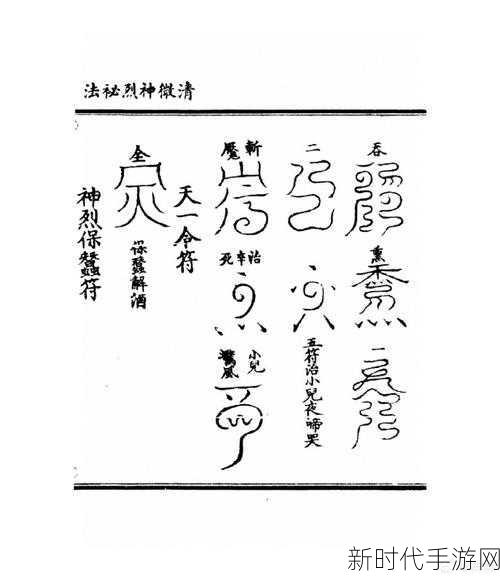 清微神烈祕法
吞
熏
二
二
五符治小兒夜啼哭
斬魘
治卒死
小兒驚風
天一令符
全
保蠶解酒
神烈保蠶符
新时代手游网